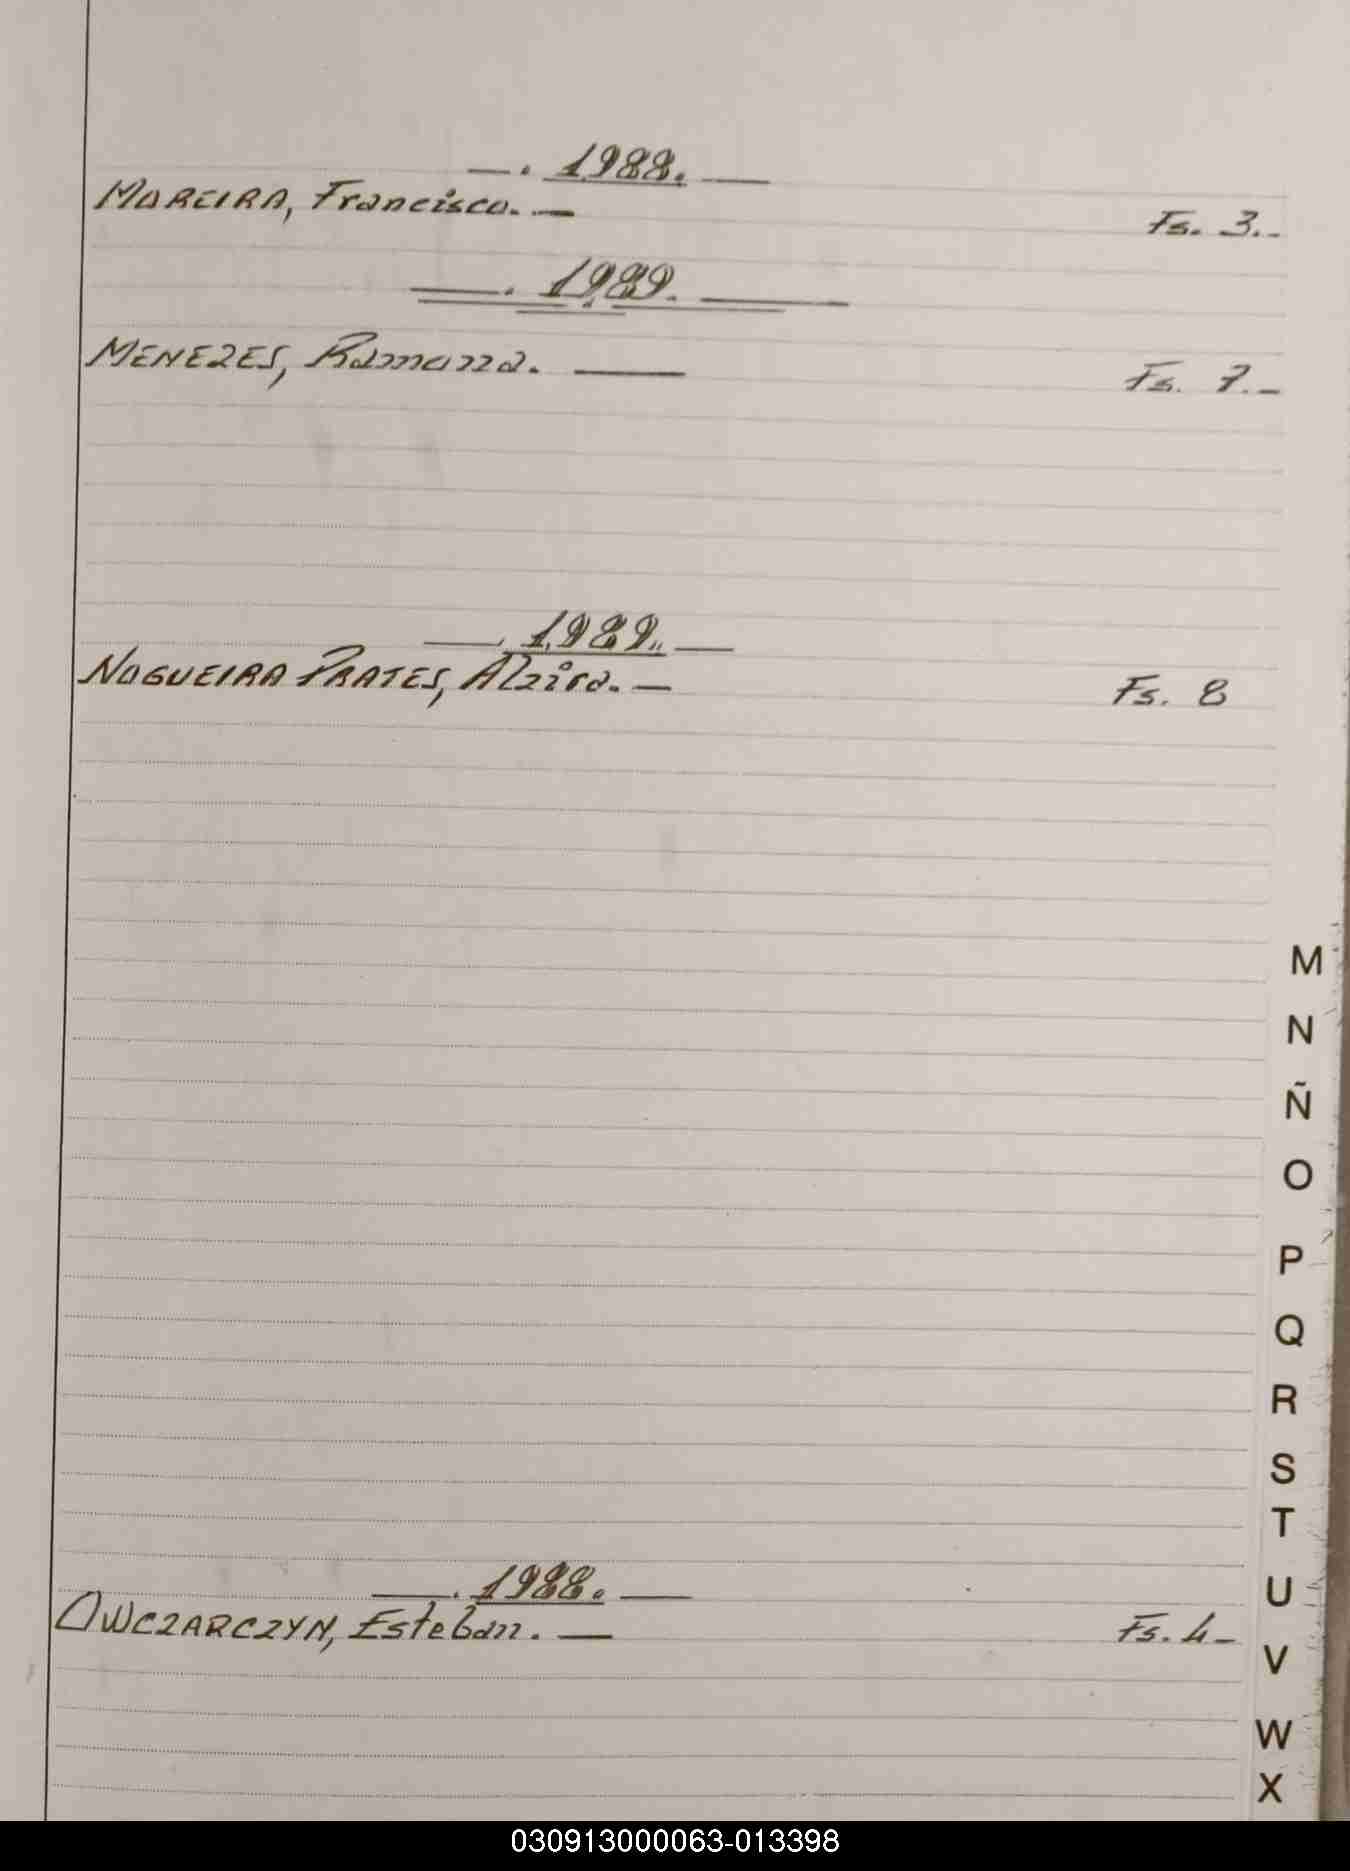 —. 1988. —
MOREIRA, Francisco. — Fs. 3.-
—. 1989. —
MENEZES, Ramona. — Fs. 7.-
—. 1989. —
NOGUEIRA PRATES, Alzira. — Fs. 8
M
N
Ñ
O
P
Q
R
S
T
—. 1988. —
U
OWCZARCZYN, Esteban. — Fs. 4-
V
W
X
030913000063-013398